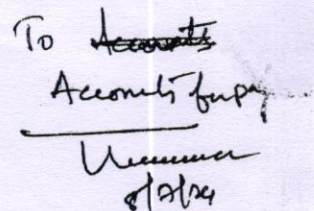 To Accounts
Accounts for pay
8/7/24